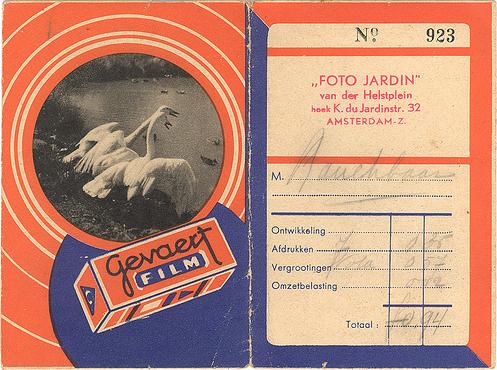 Gevaert
FILM
Nº 923
„FOTO JARDIN"
van der Helstplein
hoek K. du Jardinstr. 32
AMSTERDAM-Z.
M.
Ontwikkeling
Afdrukken
Vergrootingen
Omzetbelasting
Totaal :